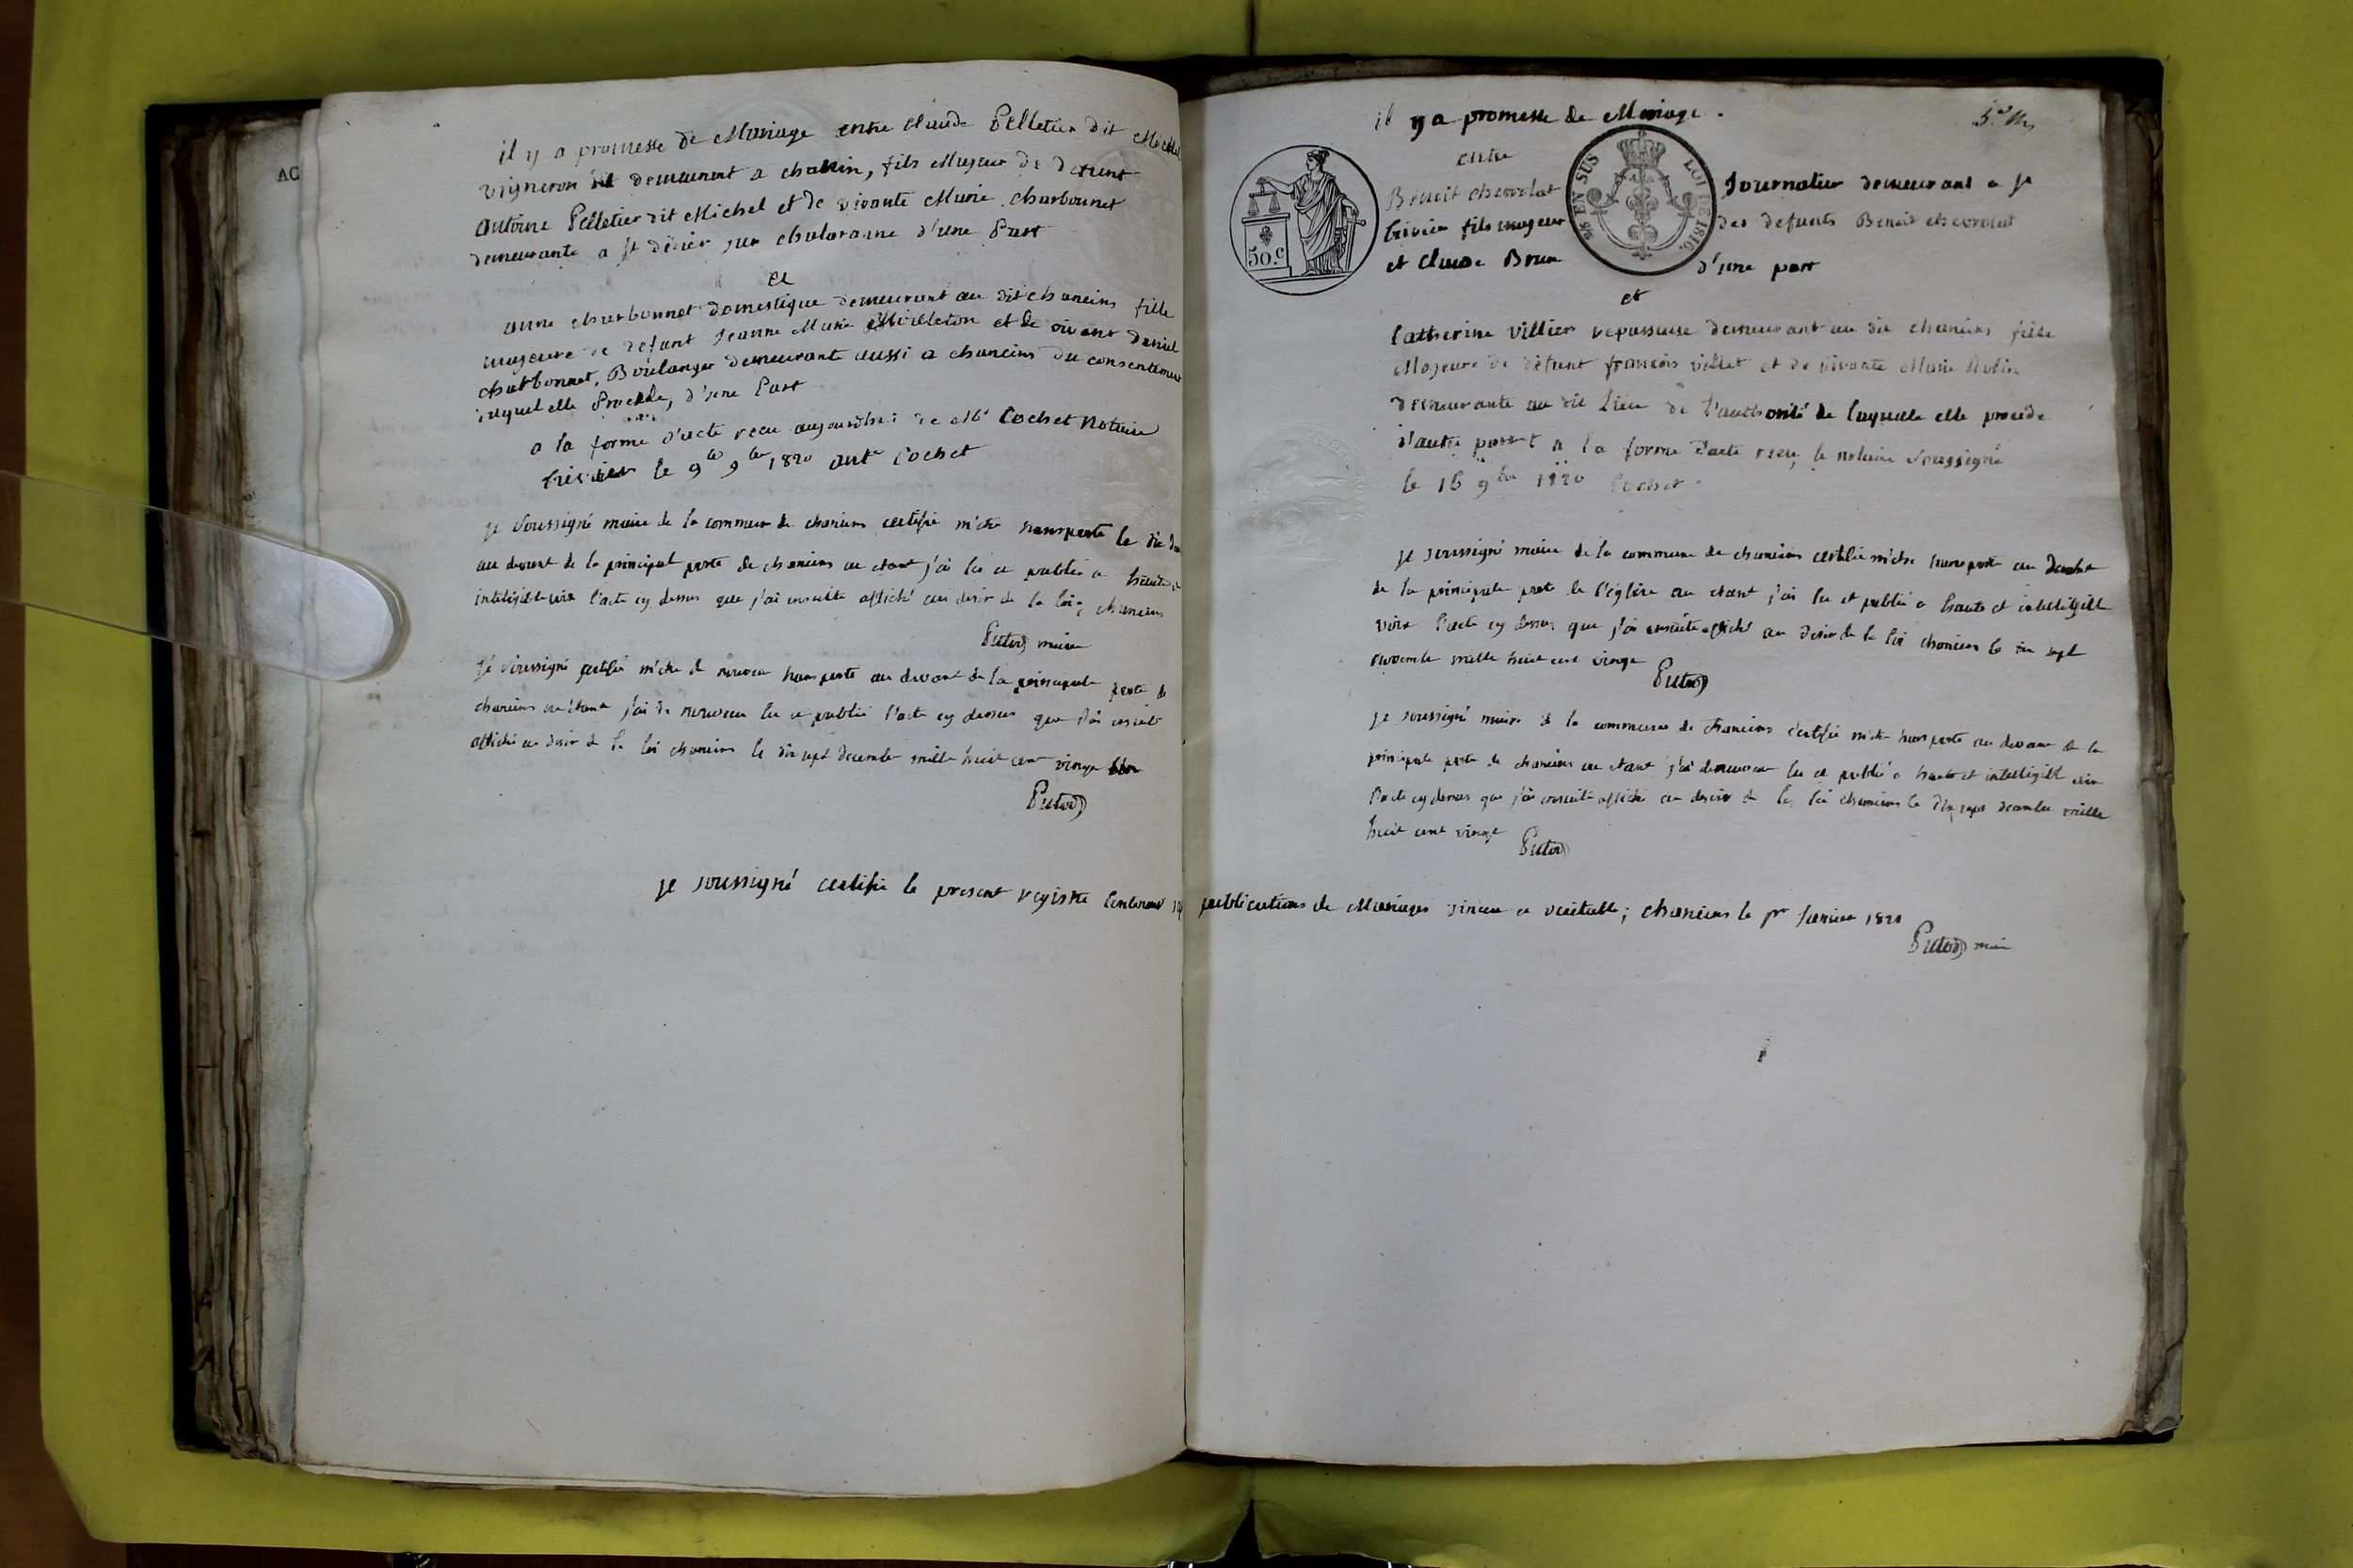 il y a promesse de Mariage entre claude Pelletier dit Michel
vigneron demeurant a chanein, fils Majeur de defunt
antoine Pelletier dit Michel et de vivante Marie charbonnet
demeurante a st didier sur chalaronne d'une Part
et
anne charbonnet domestique demeurant au dit chaneins fille
majeure de defunt Jeanne Marie et de vivant Daniel
charbonnet, Boulanger demeurante aussi a chaneins du consentement
duquel elle Procede, d'une Part
a la forme d'acte recu aujourdhui de Me Cochet Notaire
le 9 9bre 1820 Cochet
je soussigné maire de la commune de chaneins certifie m'etre transporté le
au devant de la principal porte de chaneins ou etant j'ai lu et publié a haute et
inteligible voix l'acte cy dessus que j'ai ensuite affiché au desir de la loi; chaneins
Putod maire
je soussigné certifie m'etre de nouveau transporté au devant de la principale porte de
chaneins ou etant j'ai de nouveau lu et publié l'acte cy dessus que j'ai ensuite
affiché au desir de la loi chaneins le dix sept decembre mille huit cent vingt
Putod
je soussigné certifie le present registre contenant publications de Mariages sincere et veritable; chaneins le pr Janvier 1821
Putod maire
il y a promesse de Mariage.
entre
Benoit chevrolat Journalier demeurant a st
trivier fils majeur des defunts Benoit chevrolat
et Claude Brun d'une part
50.c
EN SUS LOI DE 1816.
et
Catherine Villier repasseuse demeurant au dit chaneins fille
Majeure de defunt francois villet et de vivante Marie
demeurante au dit Lieu de l'authorité de laquelle elle procede
d'autre part a la forme d'acte recu, le notaire soussigné
le 16 9bre 1820 Cochet
je soussigné maire de la commune de chaneins certifie m'etre transporté au devant
de la principale porte de l'église ou etant j'ai lu et publié a haute et intelligible
voix l'acte cy dessus que j'ai ensuite affiché au desir de la loi chaneins le
novembre mille huit cent vingt
Putod
je soussigné maire de la commune de chaneins certifie m'etre transporté au devant de la
principale porte de chaneins ou etant j'ai de nouveau lu et publié a haute et intelligible voix
l'acte cy dessus que j'ai ensuite affiché au desir de la loi chaneins le dix sept decembre mille
huit cent vingt
Putod